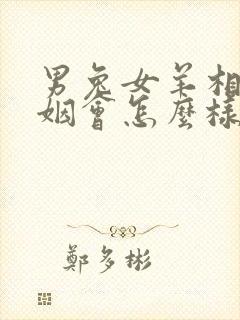 男兔女羊相
姻會怎麼樣
鄭多彬